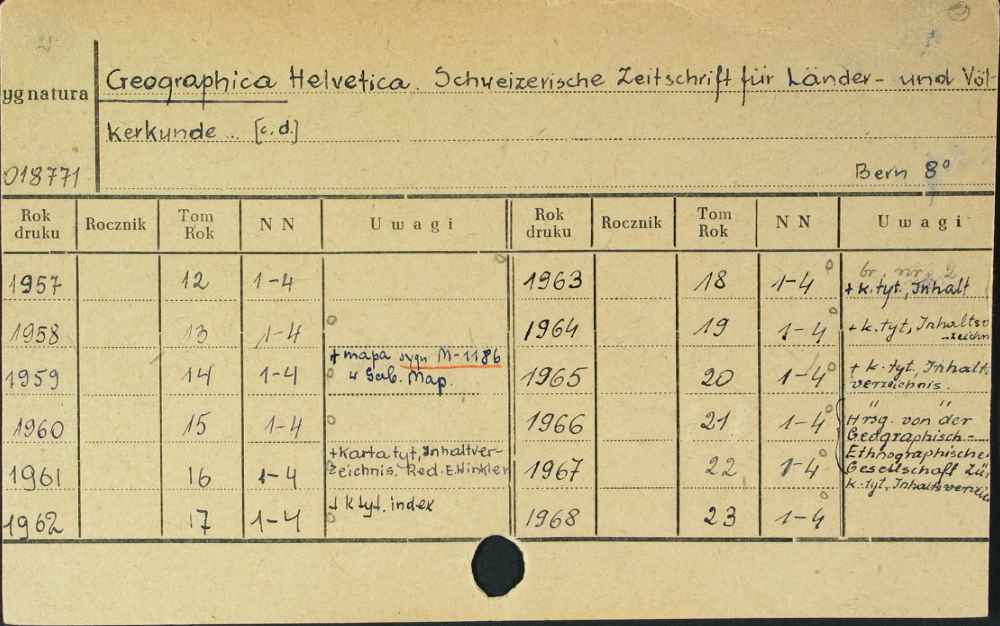 Geographica Helvetica. Schweizerische Zeitschrift für Länder- und Völ-
ygnatura
kerkunde .. [c.d.]
018771
Bern 8°
Rok druku Rocznik Tom Rok N N Uwagi Rok druku Rocznik Tom Rok N N Uwagi
1957 12 1-4
1958 13 1-4
1959 14 1-4 + mapa sygn M-1186
w Gab. Map.
1960 15 1-4
1961 16 1-4 + karta tyt, Inhaltver-
zeichnis. Red. E. Winkler
1962 17 1-4 + k tyt. index
1963 18 1-4 br. nr 2
+ k. tyt, Inhalt
1964 19 1-4 + k. tyt, Inhaltsv
-zeichn
1965 20 1-4 + k. tyt, Inhalt
verzeichnis.
1966 21 1-4 Hrsg. von der
Geographisch-
Ethnographische
1967 22 1-4 Gesellschaft Zür
k. tyt, Inhaltsverzeic
1968 23 1-4